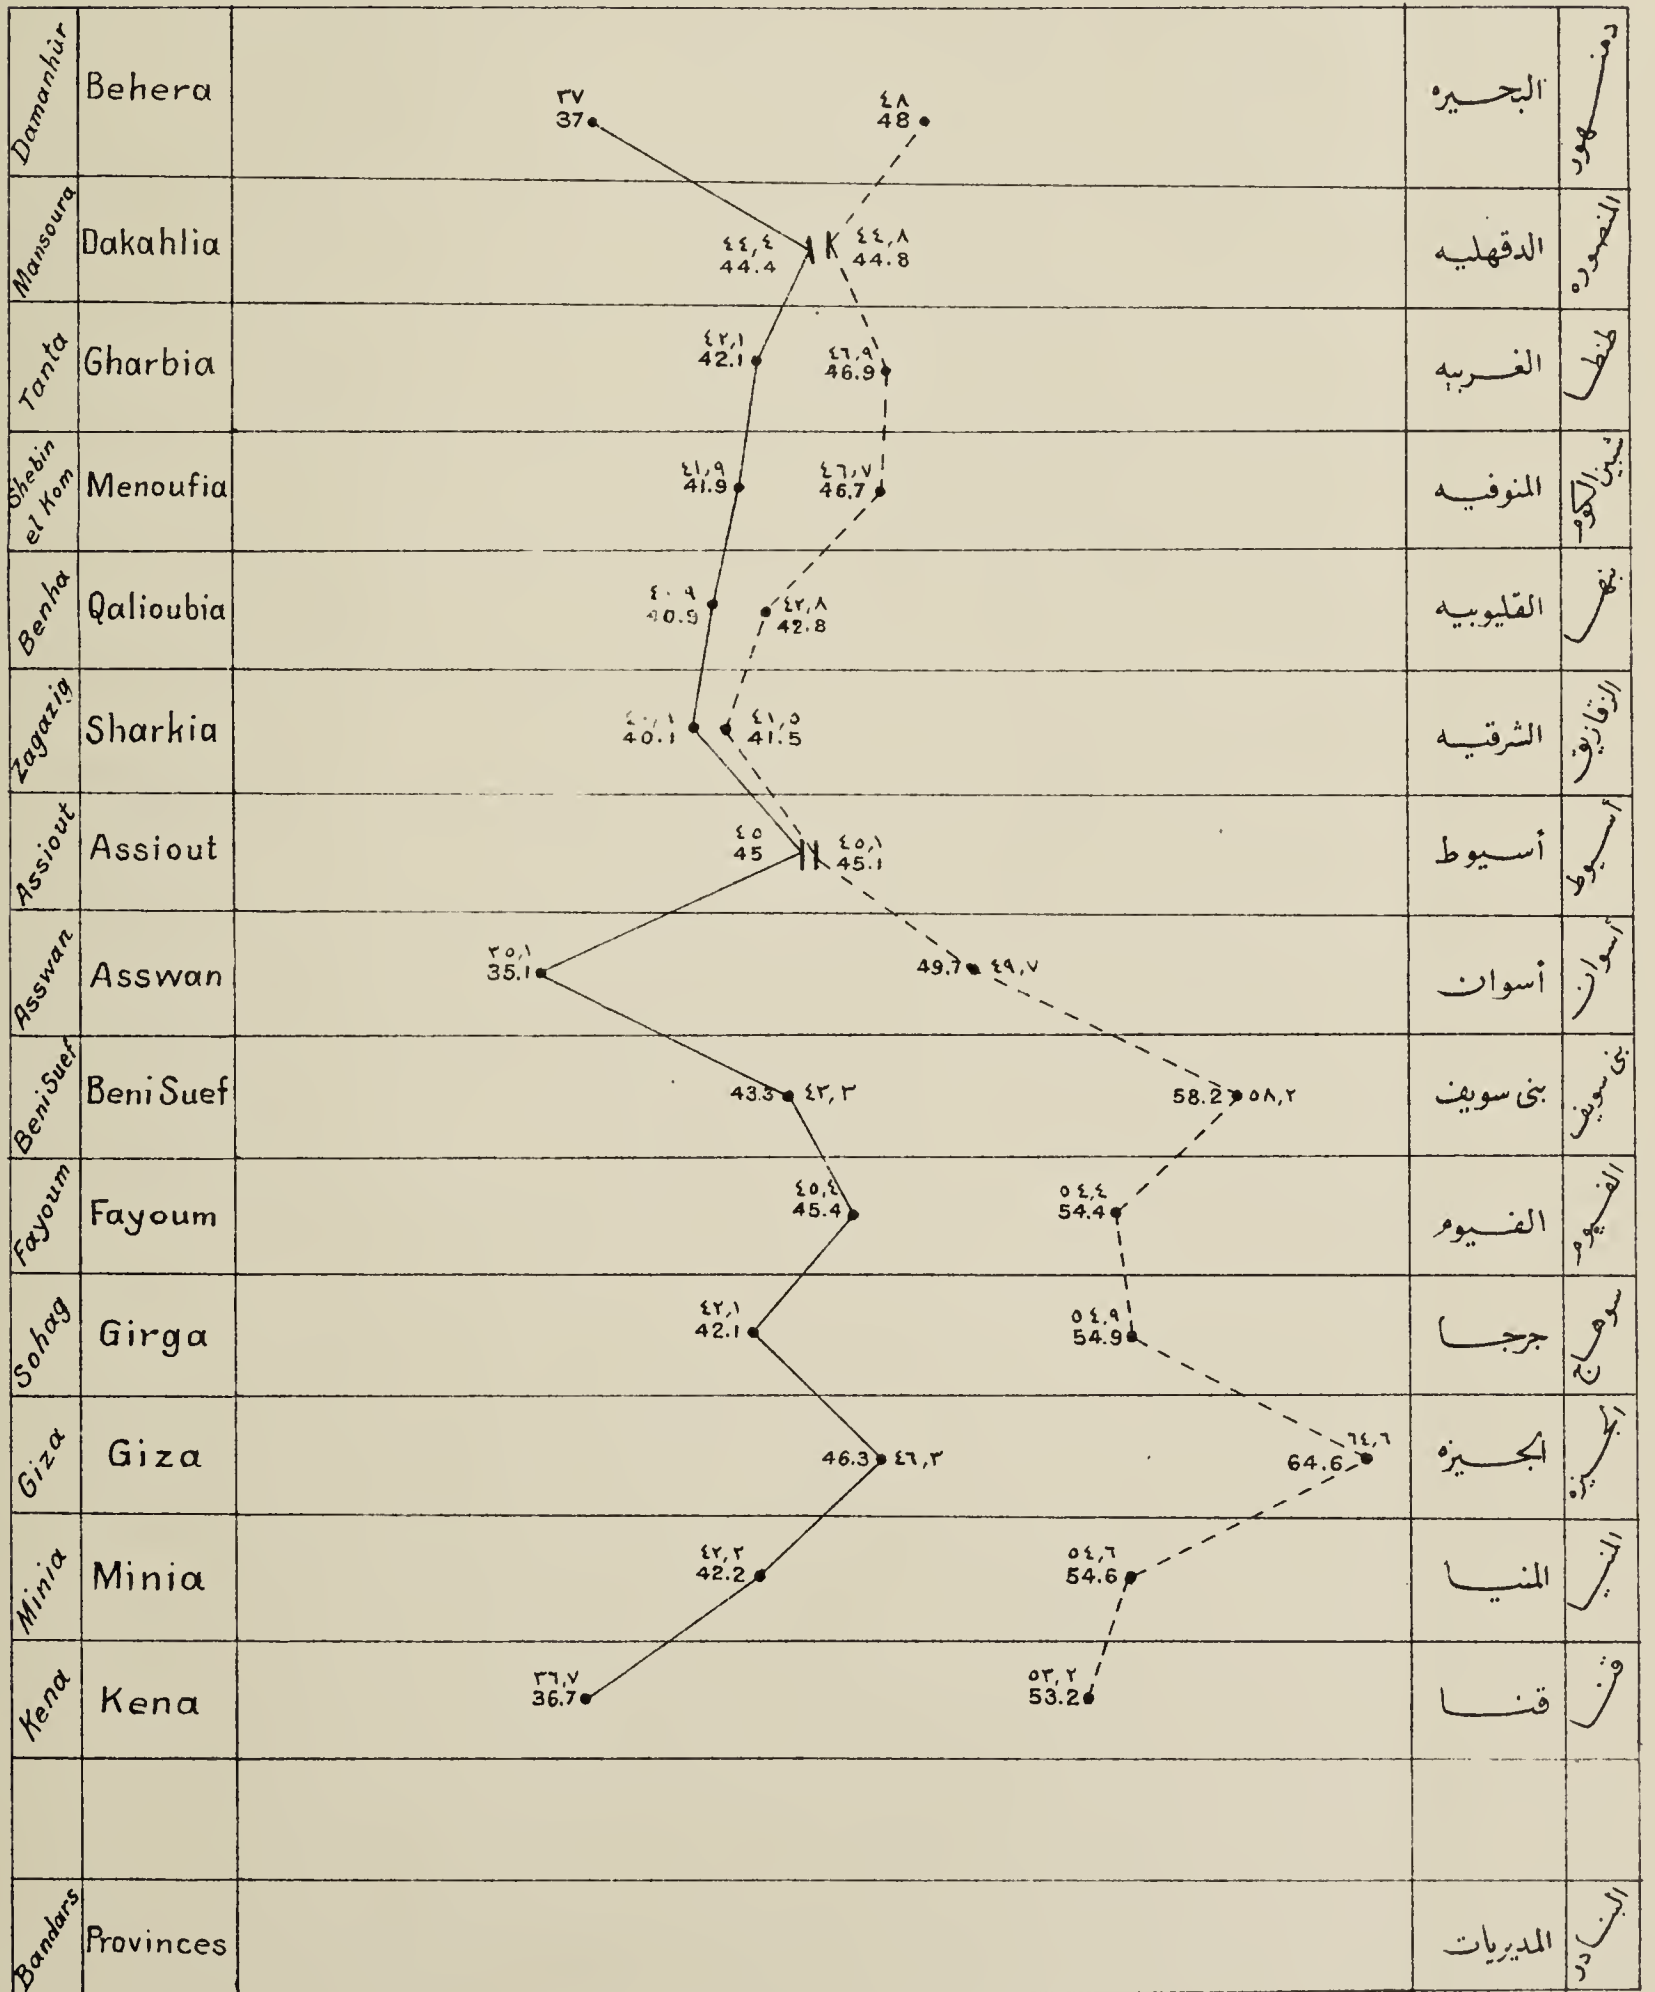 Damanhûr
Behera
٣٧
37
٤٨
48
البحيره
دمنهور
Mansoura
Dakahlia
٤٤,٤
44.4
٤٤,٨
44.8
الدقهليه
المنصوره
Tanta
Gharbia
٤٢,١
42.1
٤٦,٩
46.9
الغربيه
طنطا
Shebin
el Kom
Menoufia
٤١,٩
41.9
٤٦,٧
46.7
المنوفيه
شبين الكوم
Benha
Qalioubia
٤٠٩
40.9
٤٢,٨
42.8
القليوبيه
بنها
Zagazig
Sharkia
٤٠,١
40.1
٤١,٥
41.5
الشرقيه
الزقازيق
Assiout
Assiout
٤٥
45
٤٥,١
45.1
أسيوط
أسيوط
Asswan
Asswan
٣٥,١
35.1
49.7
٤٩,٧
أسوان
أسوان
Beni Suef
Beni Suef
43.3
٤٣,٣
58.2
٥٨,٢
بنى سويف
بنى سويف
Fayoum
Fayoum
٤٥,٤
45.4
٥٤,٤
54.4
الفيوم
الفيوم
Sohag
Girga
٤٢,١
42.1
٥٤,٩
54.9
جرجا
سوهاج
Giza
Giza
46.3
٤٦,٣
٦٤,٦
64.6
الجيزه
الجيزه
Minia
Minia
٤٢,٢
42.2
٥٤,٦
54.6
المنيا
المنيا
Kena
Kena
٣٦,٧
36.7
٥٣,٢
53.2
قنا
قنا
Bandars
Provinces
المديريات
البنادر